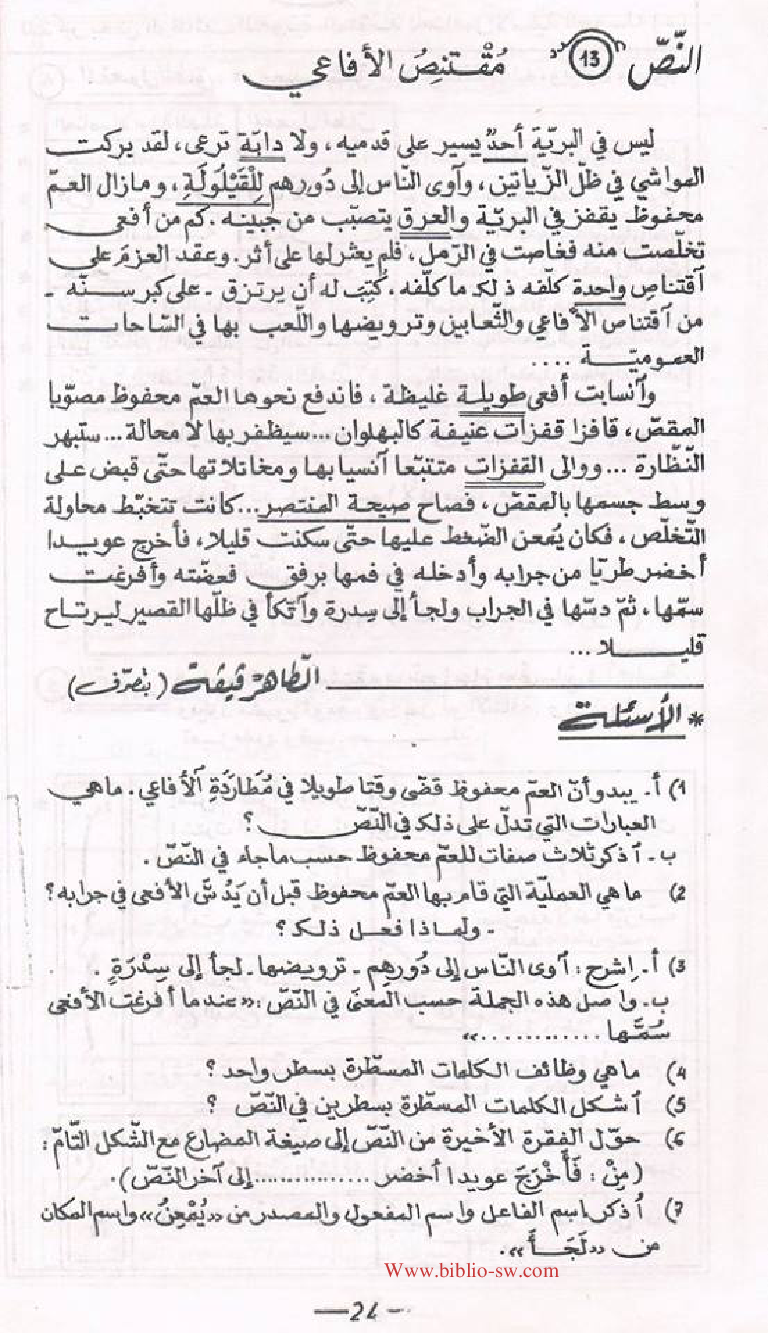 النّصّ 13 مُقْتنِصُ الأفاعي
ليس في البريّة أحدٌ يسير على قدميه، ولا دابّة ترعى، لقد بركت
المواشي في ظلّ الزّياتين، وآوى النّاس إلى دُورهم لِلْقَيْلُولَةِ، ومازال العمّ
محفوظ يقفز في البريّة والعرق يتصبّب من جبينه. كم من أفعى
تخلّصت منه فغاصت في الرّمل، فلم يعثر لها على أثر. وعقد العزم على
آقتناصِ واحدة كلّفه ذلك ما كلّفه. كُتِبَ له أن يرتزق - على كبر سنّه -
من آقتناص الأفاعي والثّعابين وترويضها واللّعب بها في السّاحات
العموميّة ....
وآنسابت أفعى طويلة غليظة، فاندفع نحوها العمّ محفوظ مصوّبا
المقصّ، قافزا قفزات عنيفة كالبهلوان ... سيظفر بها لا محالة... ستبهر
النّظّارة ... ووالى القفزات متتبّعا آنسيابها ومخاتلاتها حتّى قبض على
وسط جسمها بالمقصّ، فصاح صيحة المنتصر...كانت تتخبّط محاولة
التّخلّص، فكان يُمعن الضّغط عليها حتّى سكنت قليلا، فأخرج عويدا
أخضر طريّا من جرابه وأدخله في فمها برفق فعضّته وأفرغت
سمّها، ثمّ دسّها في الجراب ولجأ إلى سِدرة وآتّكأ في ظلّها القصير ليرتاح
قليلا ...
الطّاهر قيقة (بتصرّف)
* الأسئلة
1) أ. يبدو أنّ العمّ محفوظ قضى وقتا طويلا في مُطَارَدَةِ الأفاعي. ماهي
العبارات التي تدلّ على ذلك في النّصّ؟
ب - آذكر ثلاث صفات للعمّ محفوظ حسب ماجاء في النّصّ.
2) ماهي العمليّة التي قام بها العمّ محفوظ قبل أن يَدُسَّ الأفعى في جرابه؟
- ولماذا فعل ذلك؟
3) أ. اِشرح: آوى النّاس إلى دُورِهِم - ترويضها - لجأ إلى سِدْرَةٍ.
ب. واصل هذه الجملة حسب المعنى في النّصّ: «عندما أفرغت الأفعى
سُمَّها .............»
4) ماهي وظائف الكلمات المسطّرة بسطر واحد؟
5) آشكل الكلمات المسطّرة بسطرين في النّصّ ؟
6) حوّل الفقرة الأخيرة من النّصّ إلى صيغة المضارع مع الشّكل التّامّ:
(مِنْ: فَأَخْرَجَ عويدا أخضر ................إلى آخر النّصّ).
7) آذكر اسم الفاعل واسم المفعول والمصدر من «يُمْعِنُ» واسم المكان
من «لَجَأَ».
Www.biblio-sw.com
—24-